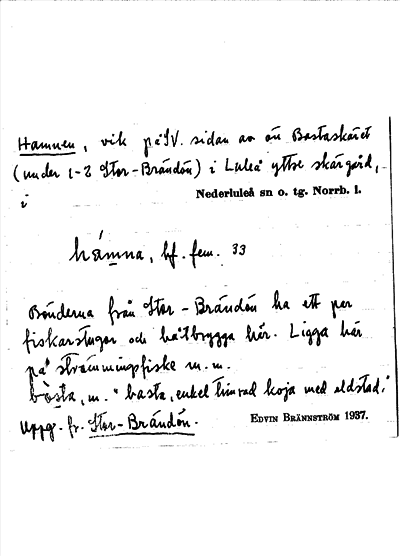 Hamnen, vik på SV. sidan av ön Bastaskäret
(under 1-2 Stor-Brändön) i Luleå yttre skärgård,
i
Nederluleå sn o. tg. Norrb. l.
hámna, bf. fem. 33
Bönderna från Stor-Brändön ha ett par
fiskarstugor och båtbrygga här. Ligga här
på strömmingsfiske m.m.
bàsta, m. "basta, enkel timrad koja med eldstad."
Uppg. fr. Stor-Brändön.
EDVIN BRÄNNSTRÖM 1937.